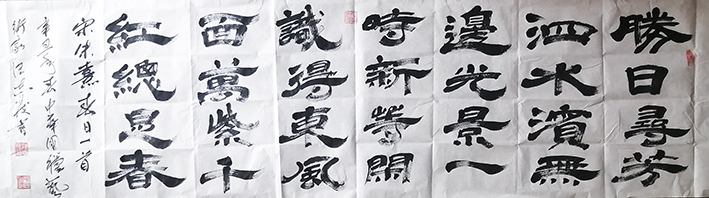 勝日尋芳
泗水濱無
邊光景一
時新等閑
識得東風
面萬紫千
紅總是春
宋朱熹春日一首
辛丑年春中華國禮藝
術家